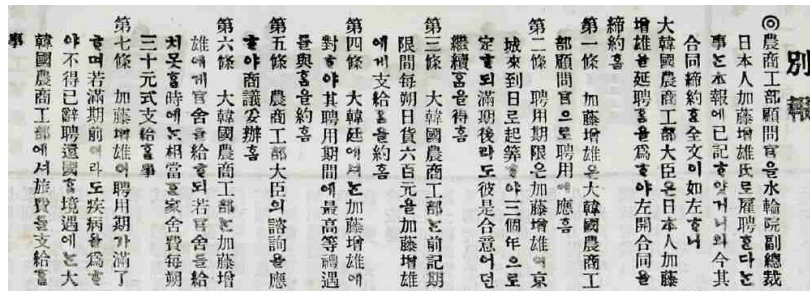 別報
◎農商工部顧問官을水輪院副總裁
日本人加藤增雄氏로雇聘ᄒᆞ다ᄂᆞᆫ
事ᄂᆞᆫ本報에已記ᄒᆞ얏거니와今其
合同締約ᄒᆞᆫ全文이如左ᄒᆞ니
大韓國農商工部大臣은日本人加藤
增雄을延聘홈을爲ᄒᆞ야左開合同을
締約홈
第一條 加藤增雄은大韓國農商工
部顧問官으로聘用에應홈
第二條 聘用期限은加藤增雄이京
城來到日로起筭ᄒᆞ야三個年으로
定ᄒᆞ되滿期後라도彼是合意어던
繼續홈을得홈
第三條 大韓國農商工部ᄂᆞᆫ前記期
限間每朔日貨六百元을加藤增雄
에게支給홈을約홈
第四條 大韓廷에셔ᄂᆞᆫ加藤增雄에
對ᄒᆞ야其聘用期間에最高等禮遇
를與홈을約홈
第五條 農商工部大臣의諮詢을應
ᄒᆞ야商議妥辦홈
第六條 大韓國農商工部ᄂᆞᆫ加藤增
雄에게官舍를給ᄒᆞ되若官舍를給
치못홀時에ᄂᆞᆫ相當ᄒᆞᆫ家舍費每朔
三十元式支給홀事
第七條 加藤增雄이聘用期가滿了
ᄒᆞ며若滿期前이라도疾病을爲ᄒᆞ
야不得已辭聘還國홀境遇에ᄂᆞᆫ大
韓國農商工部에셔旅費를支給홀
事